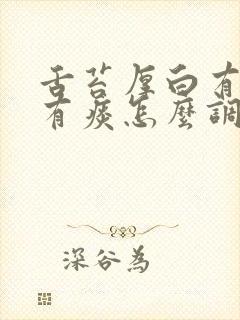 舌苔厚白有
有痰怎麼調
深谷為